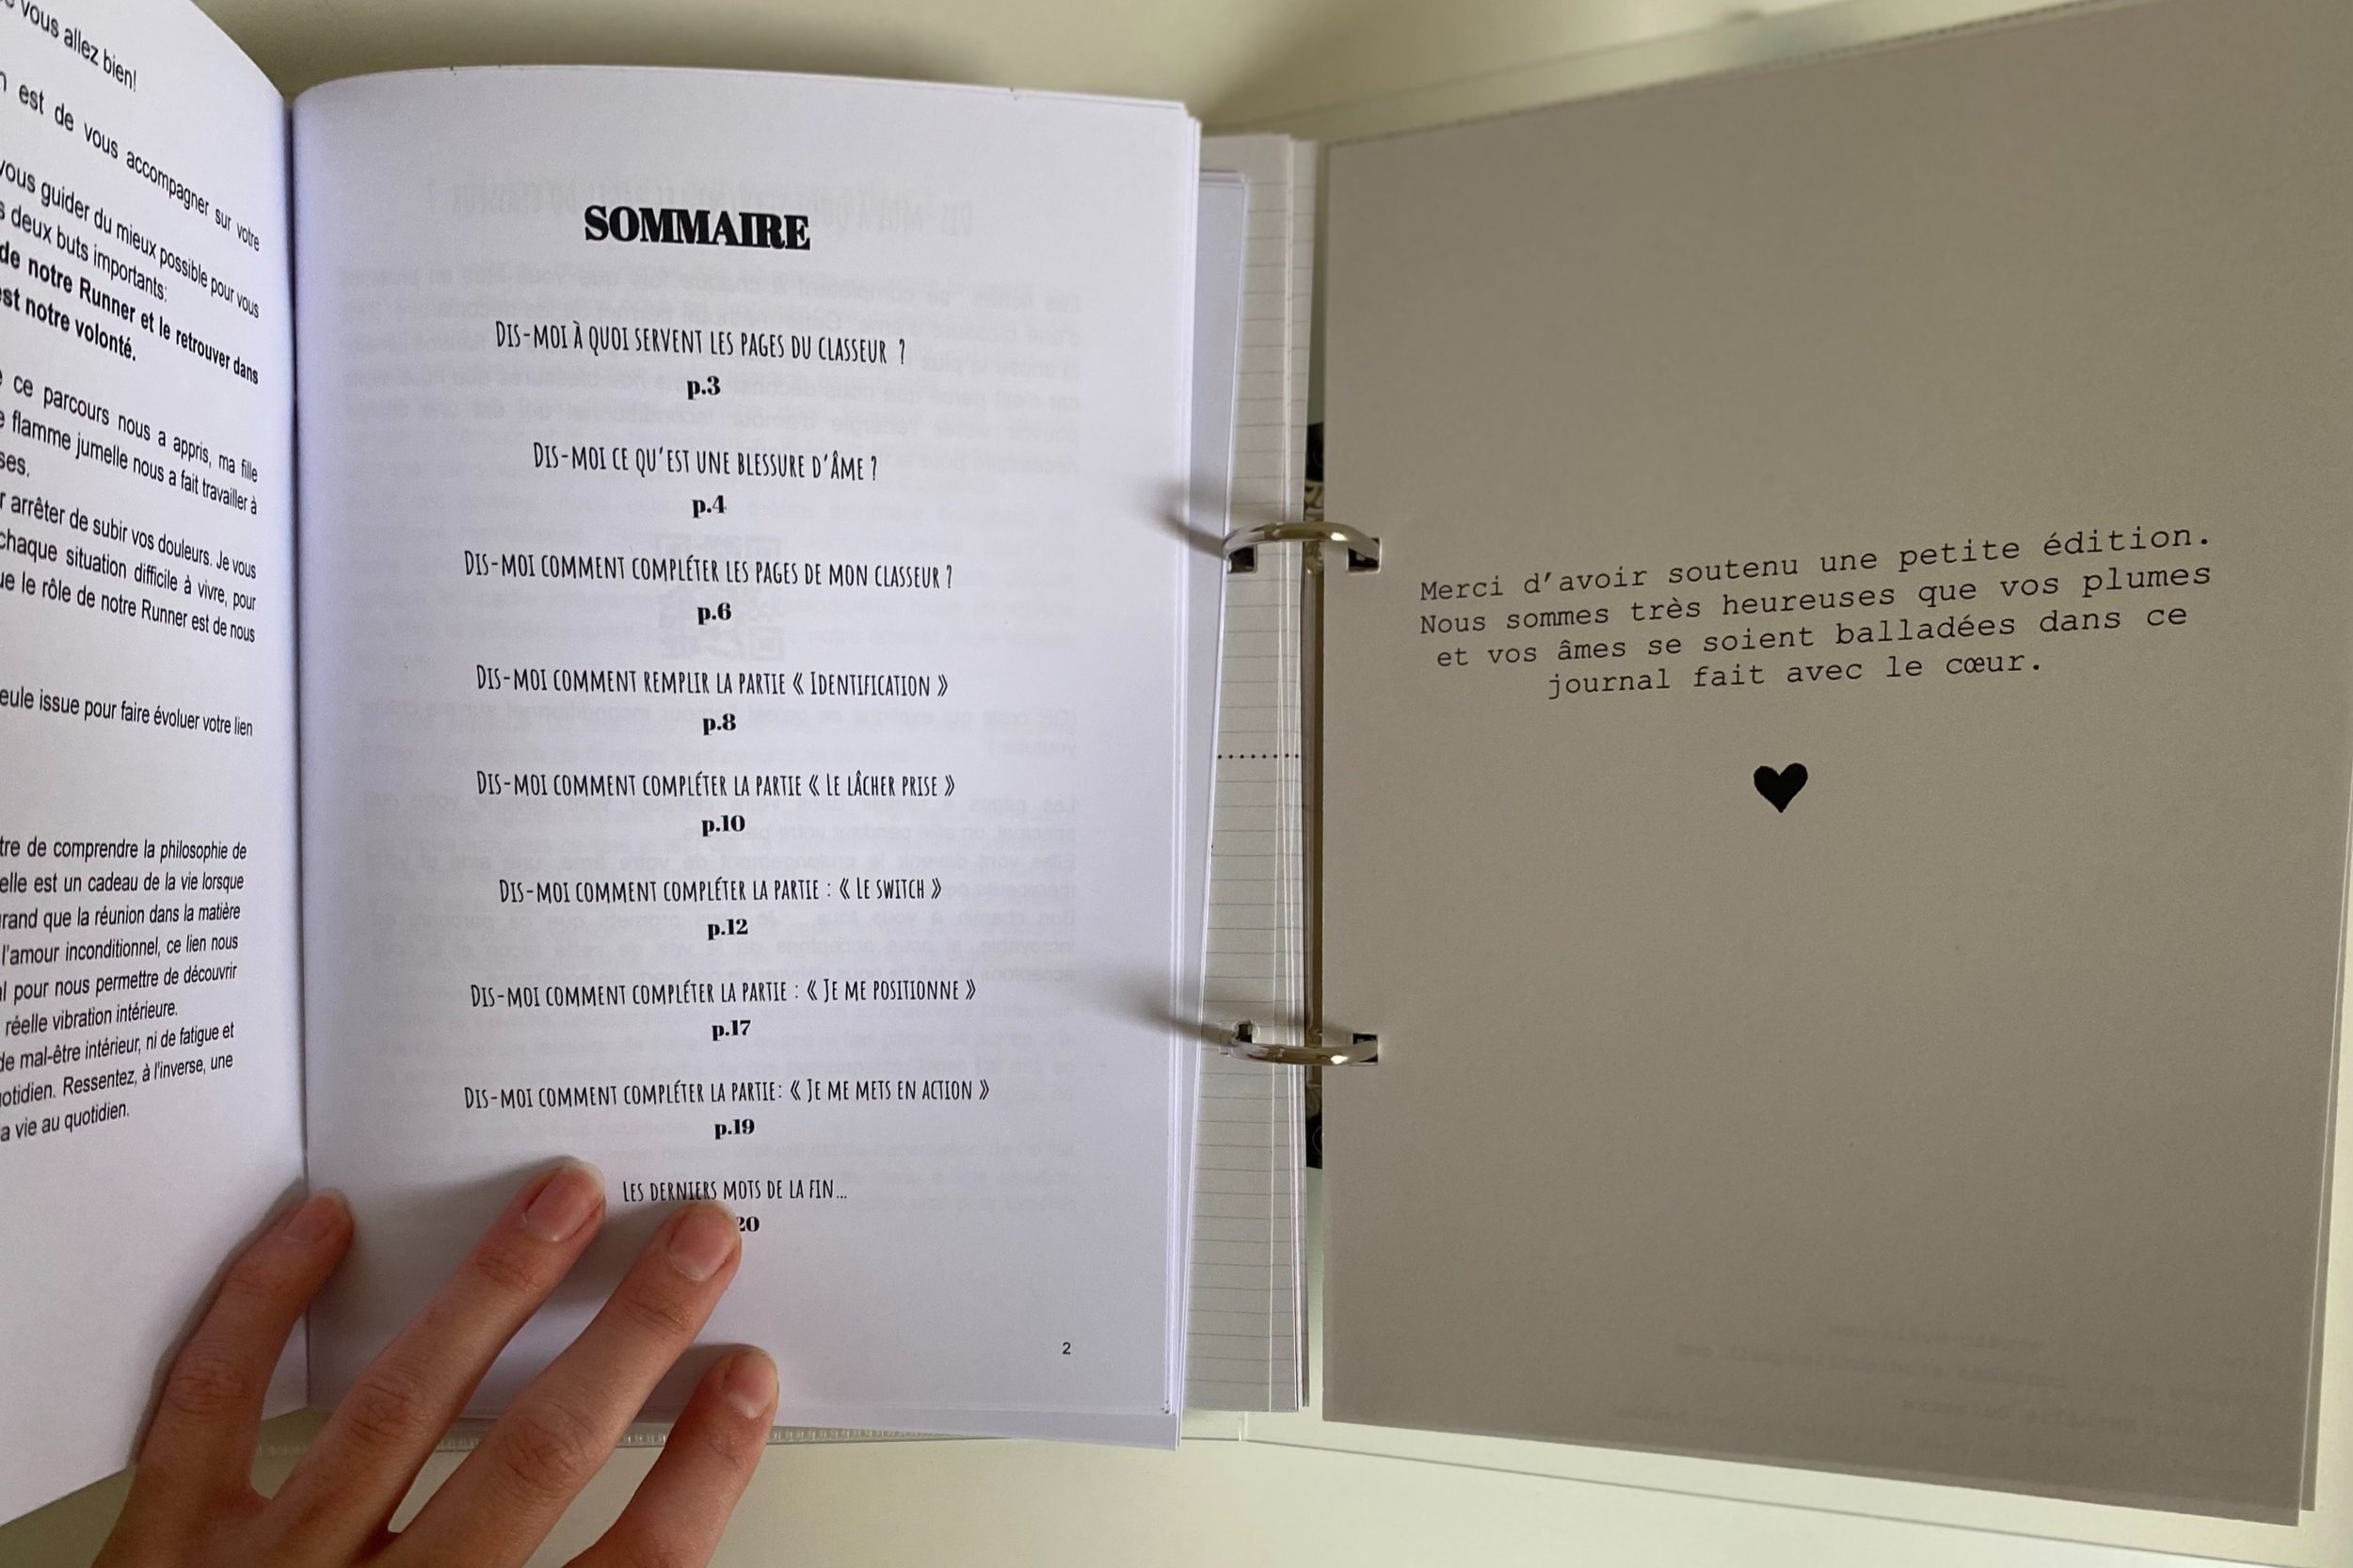 vous allez bien!
est de vous accompagner sur votre
vous guider du mieux possible pour vous
deux buts importants:
de notre Runner et le retrouver dans
notre volonté.
ce parcours nous a appris, ma fille
flamme jumelle nous a fait travailler à
arrêter de subir vos douleurs. Je vous
chaque situation difficile à vivre, pour
le rôle de notre Runner est de nous
issue pour faire évoluer votre lien
de comprendre la philosophie de
elle est un cadeau de la vie lorsque
que la réunion dans la matière
l'amour inconditionnel, ce lien nous
pour nous permettre de découvrir
réelle vibration intérieure.
de mal-être intérieur, ni de fatigue et
Ressentez, à l'inverse, une
vie au quotidien.
SOMMAIRE
DIS-MOI À QUOI SERVENT LES PAGES DU CLASSEUR ?
p.3
DIS-MOI CE QU'EST UNE BLESSURE D'ÂME ?
p.4
DIS-MOI COMMENT COMPLÉTER LES PAGES DE MON CLASSEUR ?
p.6
DIS-MOI COMMENT REMPLIR LA PARTIE « IDENTIFICATION »
p.8
DIS-MOI COMMENT COMPLÉTER LA PARTIE « LE LÂCHER PRISE »
p.10
DIS-MOI COMMENT COMPLÉTER LA PARTIE : « LE SWITCH »
p.12
DIS-MOI COMMENT COMPLÉTER LA PARTIE : « JE ME POSITIONNE »
p.17
DIS-MOI COMMENT COMPLÉTER LA PARTIE: « JE ME METS EN ACTION »
p.19
LES DERNIERS MOTS DE LA FIN...
20
2
Merci d'avoir soutenu une petite édition.
Nous sommes très heureuses que vos plumes
et vos âmes se soient balladées dans ce
journal fait avec le cœur.